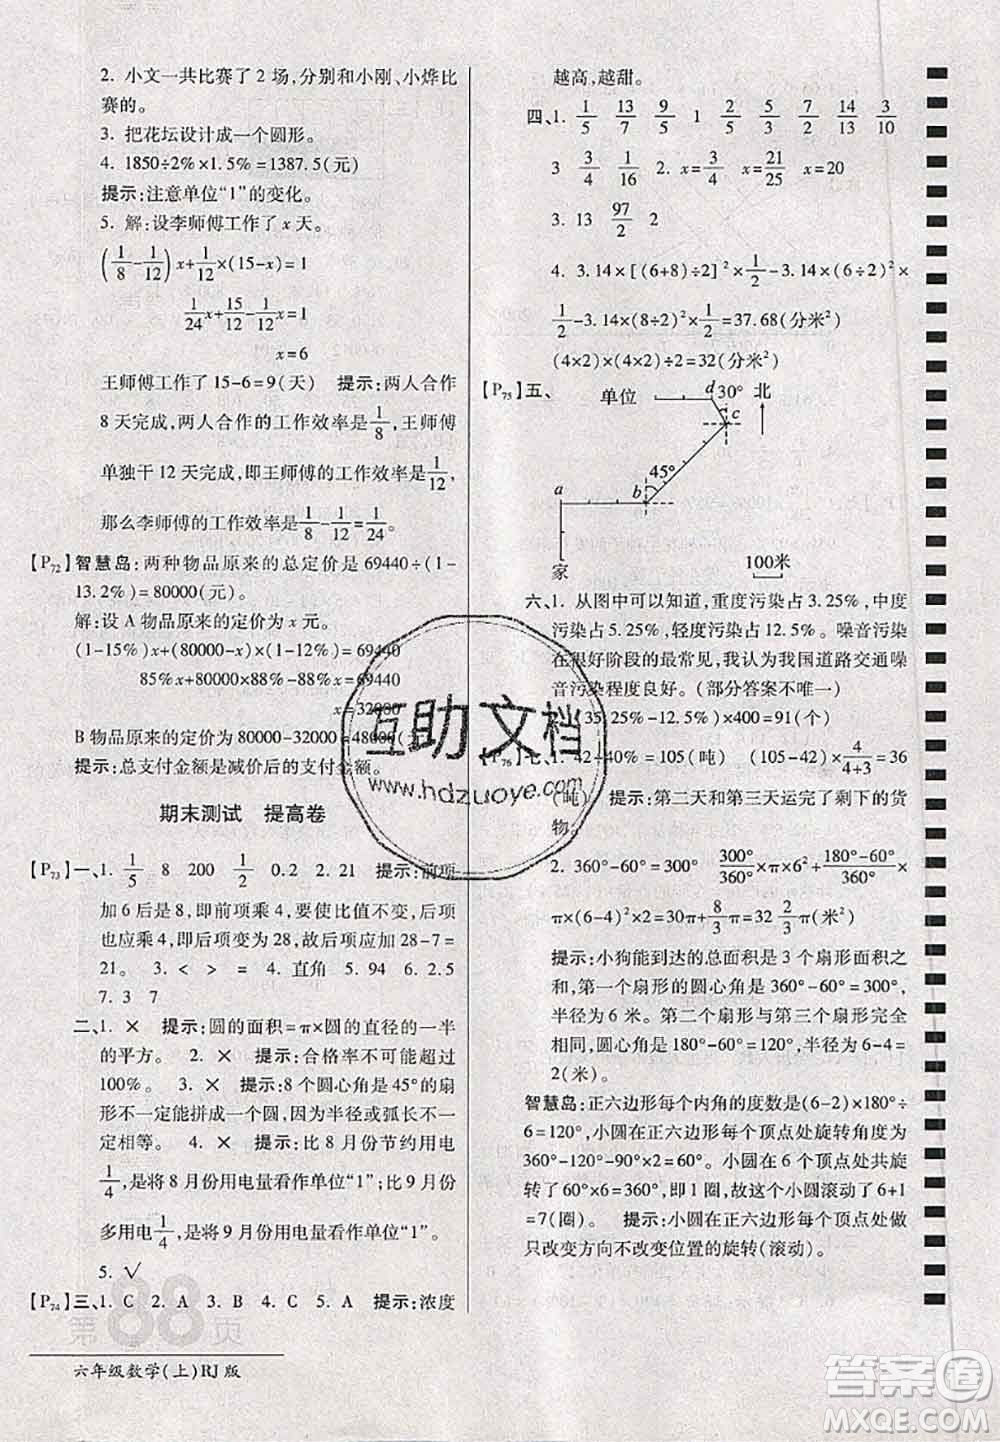 2. 小文一共比赛了 2 场,分别和小刚、小烨比
赛的。
3. 把花坛设计成一个圆形。
4. 1850÷2%×1.5%=1387.5(元)
提示:注意单位“1”的变化。
5. 解:设李师傅工作了 x 天。
(1/8-1/12)x+1/12×(15-x)=1
1/24x+15/12-1/12x=1
x=6
王师傅工作了 15-6=9(天) 提示:两人合作
8 天完成,两人合作的工作效率是1/8,王师傅
单独干 12 天完成,即王师傅的工作效率是1/12,
那么李师傅的工作效率是1/8-1/12=1/24。
【P72】智慧岛:两种物品原来的总定价是 69440÷(1-
13.2%)=80000(元)。
解:设 A 物品原来的定价为 x 元。
(1-15%)x+(80000-x)×(1-12%)=69440
85%x+80000×88%-88%x=69440
x=32000
B 物品原来的定价为 80000-32000=48000(元)
提示:总支付金额是减价后的支付金额。
期末测试 提高卷
【P73】一、1. 1/5 8 200 1/2 0.2 2. 21 提示:前项
加 6 后是 8,即前项乘 4,要使比值不变,后项
也应乘 4,即后项变为 28,故后项加 28-7=
21。 3. < > = 4. 直角 5. 94 6. 2.5
7. 3 7
二、1. × 提示:圆的面积=π×圆的直径的一半
的平方。 2. × 提示:合格率不可能超过
100%。 3. × 提示:8 个圆心角是 45°的扇
形不一定能拼成一个圆,因为半径或弧长不
一定相等。 4. × 提示:比 8 月份节约用电
1/4,是将 8 月份用电量看作单位“1”;比 9 月份
多用电1/4,是将 9 月份用电量看作单位“1”。
5. √
【P74】三、1. C 2. A 3. B 4. C 5. A 提示:浓度
第 88 页
六年级数学(上)RJ 版
越高,越甜。
四、1. 1/5 13/6 9/5 1 2/9 7/3 8/7 14/5 3/10
3 3/4 1/16 2. x=3/4 x=21/25 x=20
3. 13 97/2 2
4. 3.14×[(6+8)÷2]²×1/2-3.14×(6÷2)²×
1/2-3.14×(8÷2)²×1/2=37.68(分米²)
(4×2)×(4×2)÷2=32(分米²)
【P75】五、 单位 d 30° 北
c
45°
a b
家 100米
六、1. 从图中可以知道,重度污染占 3.25%,中度
污染占 5.25%,轻度污染占 12.5%。噪音污染
在很好阶段的最常见,我认为我国道路交通噪
音污染程度良好。(部分答案不唯一)
(35.25%-12.5%)×400=91(个)
【P76】七、1. 42÷40%=105(吨) (105-42)×4/(4+3)=36
(吨) 提示:第二天和第三天运完了剩下的货
物。
2. 360°-60°=300° 300°/360°×π×6²+(180°-60°)/360°×
π×(6-4)²×2=30π+8/3π=32 2/3π(米²)
提示:小狗能到达的总面积是 3 个扇形面积之
和,第一个扇形的圆心角是 360°-60°=300°,
半径为 6 米。第二个扇形与第三个扇形完全
相同,圆心角是 180°-60°=120°,半径为 6-4=
2(米)。
智慧岛:正六边形每个内角的度数是(6-2)×180°÷
6=120°,小圆在正六边形每个顶点处旋转角度为
360°-120°-90°×2=60°。小圆在 6 个顶点处共旋
转了 60°×6=360°,即 1 圈,故这个小圆滚动了 6+1
=7(圈)。 提示:小圆在正六边形每个顶点处做
只改变方向不改变位置的旋转(滚动)。
互助文档
www.hdzuoye.com
答案圈
MXQE.COM